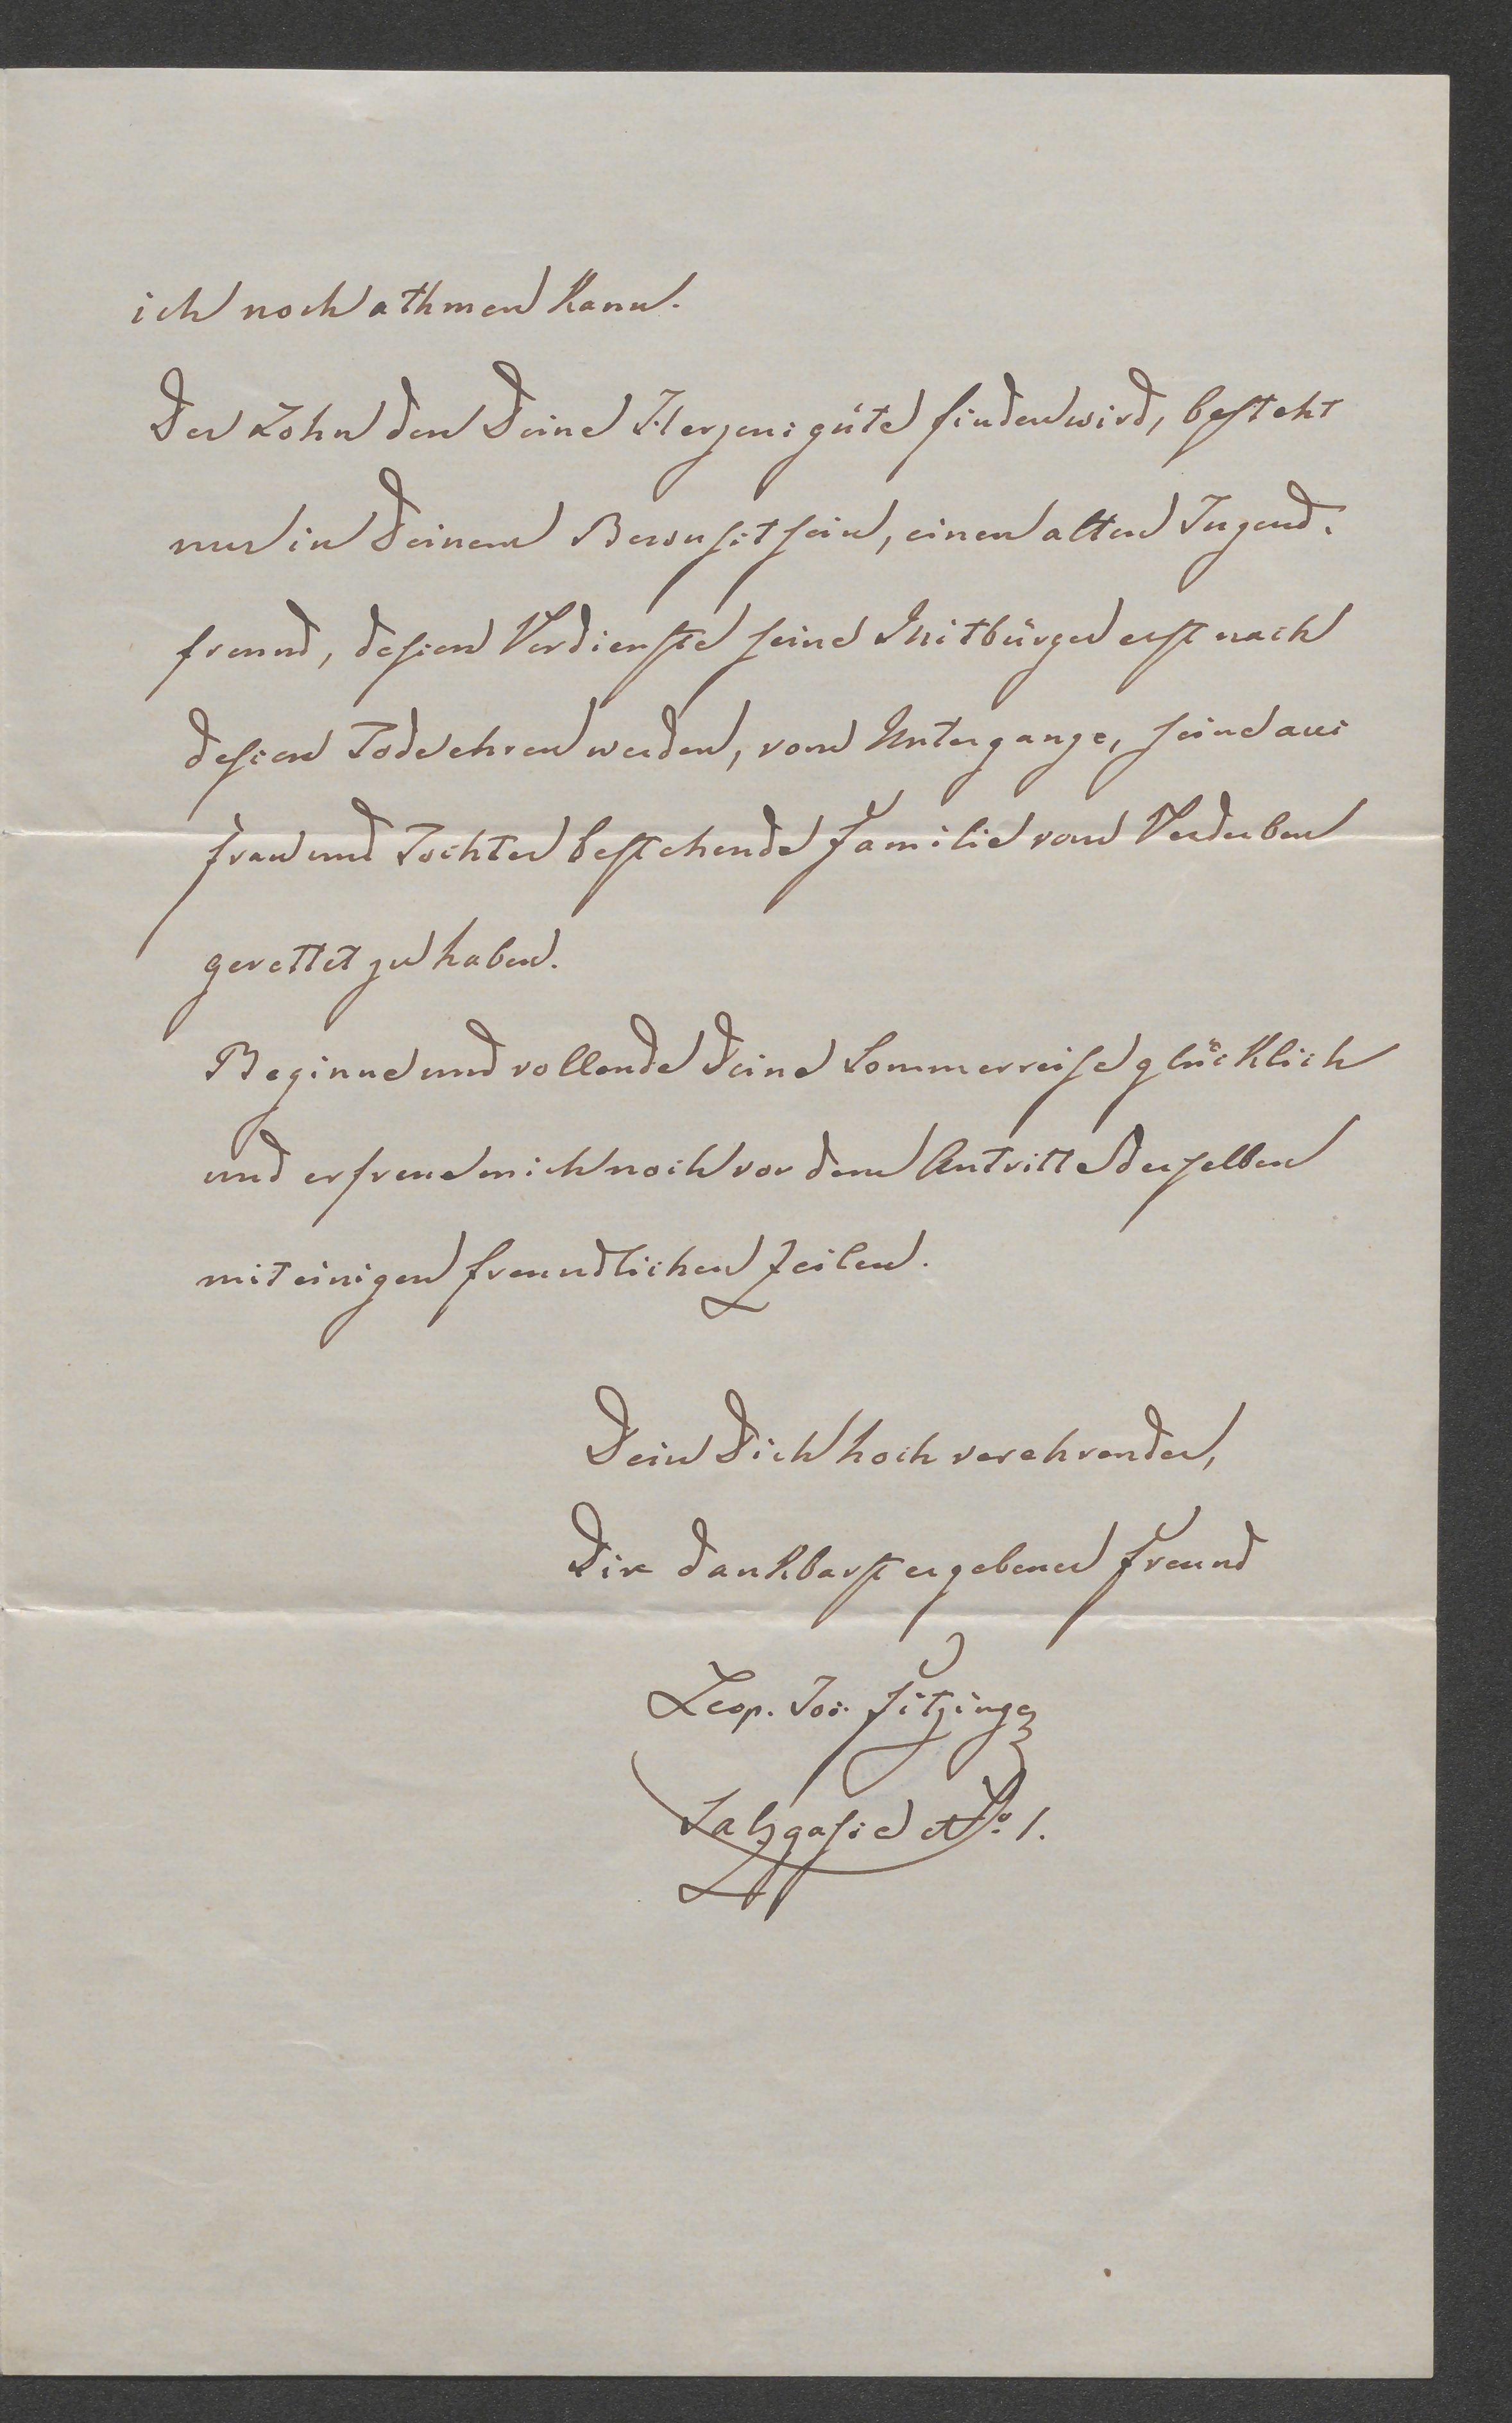 ich noch athmen kann.
Der Lohn den Deine Herzensgüte finden wird, besteht
nur in Deinem Bewußtsein, einen alten Jugend-
freund, deßen Verdienste seine Mitbürger erst nach
deßen Tode ehren werden, vom Untergange, seine aus
Frau und Tochter bestehende Familie vom Verderben
gerettet zu haben.
Beginne und vollende Deine Sommerreise glücklich
und erfreue mich noch vor dem Antritte derselben
mit einigen freundlichen Zeilen.
Dein Dich hoch verehrender,
Dir dankbarst ergebener Freund
Leop. Jos. Fitzinger
Salzgaße No. 1.